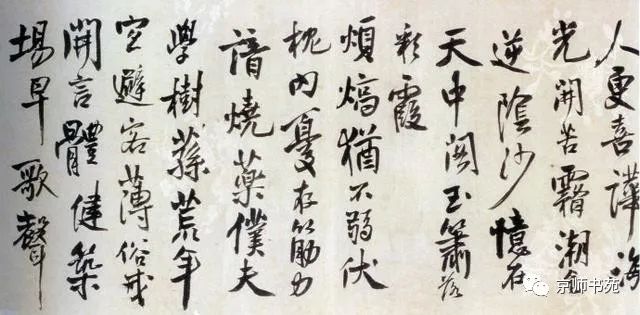 人更喜譁海
光開苦霜潮愈
逆陰沙憶在
天中閣玉簫落
彩霞
煩熇猶不弱伏
枕内憂存筋力
諳燒藥僕夫
學樹蓀荒年
空避客薄俗戒
開言體健築
場早歌聲
京师书苑